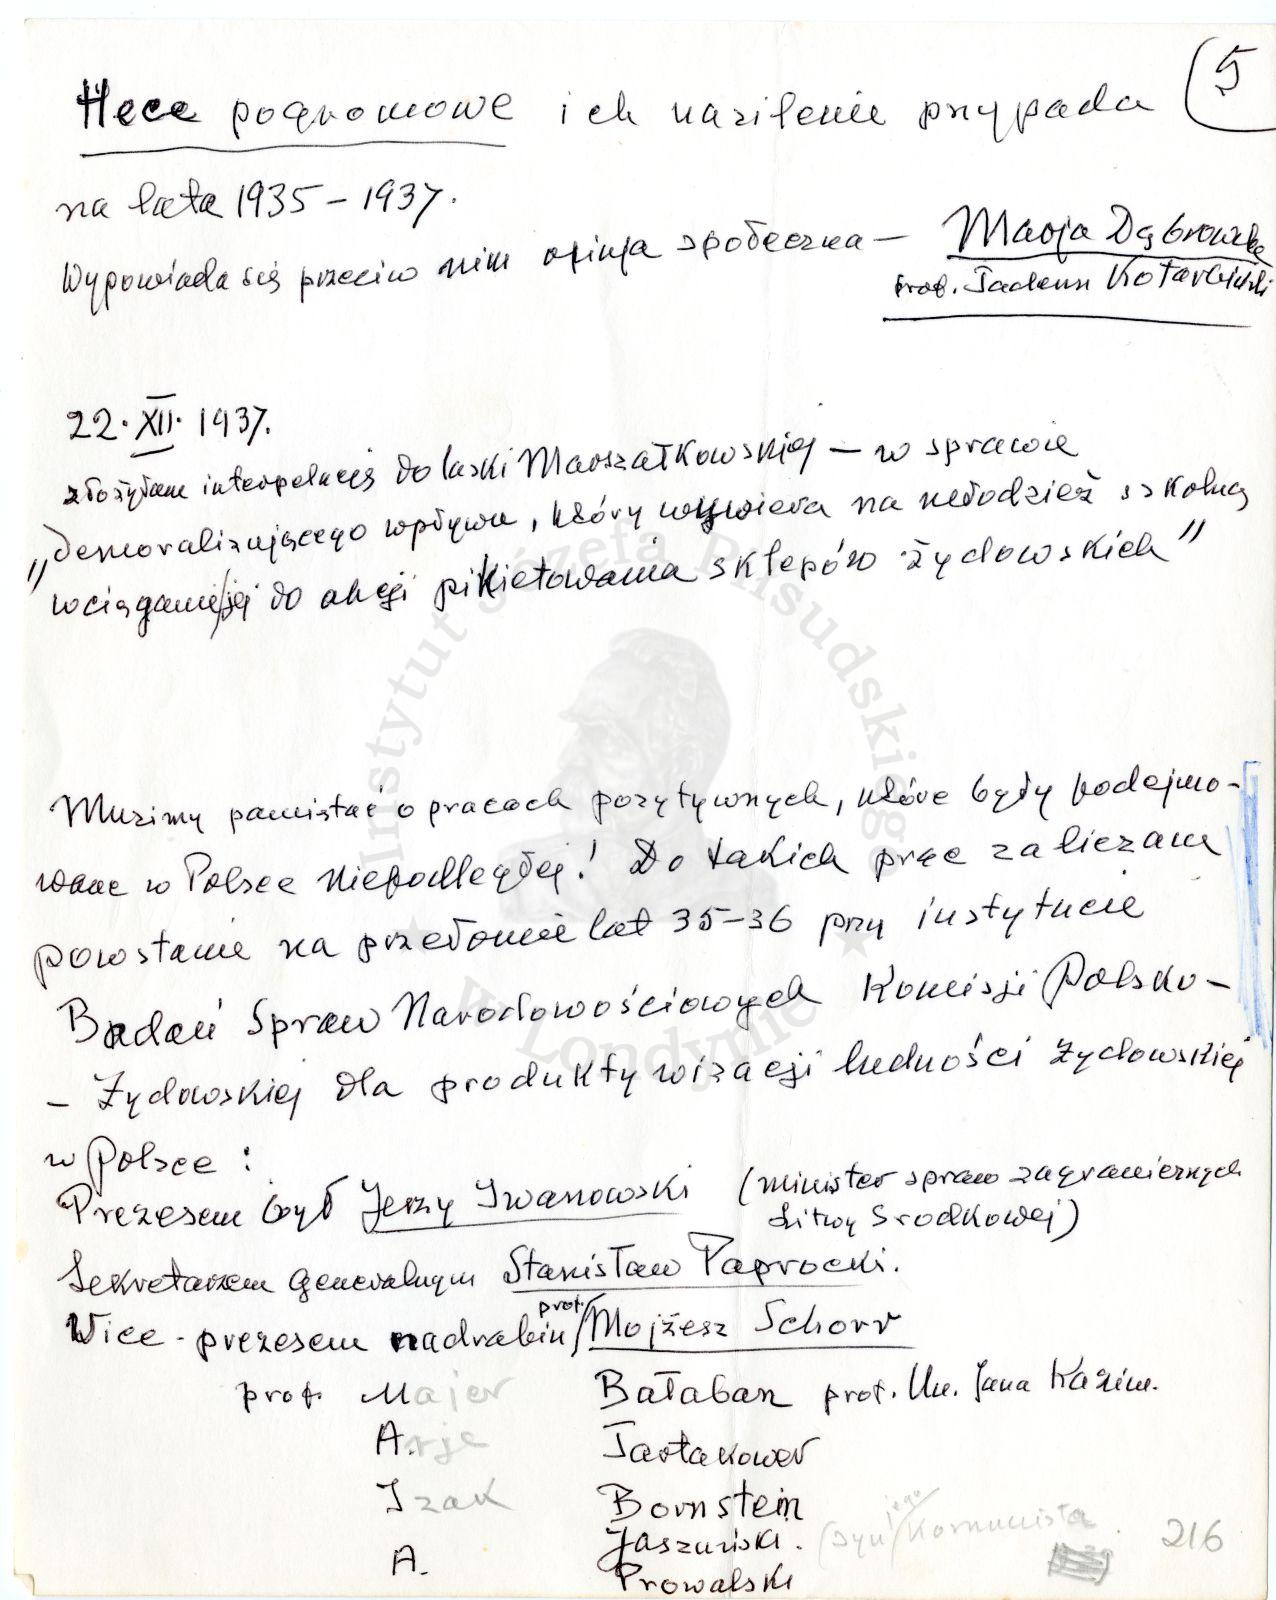 5
Hece pogromowe ich nasilenie przypada
na lata 1935 – 1937.
Wypowiada się przeciw nim opinja społeczna – Maria Dąbrowska
prof. Tadeusz Kotarbiński
22. XII. 1937.
złożyłam interpelację do laski Marszałkowskiej – w sprawie
„demoralizującego wpływu, który wywiera na młodzież szkolną
wciąganie jej do akcji pikietowania sklepów żydowskich”
Musimy pamiętać o pracach pozytywnych, które były podejmo-
wane w Polsce Niepodległej! Do takich prac zaliczam
powstanie na przełomie lat 35–36 przy instytucie
Badań Spraw Narodowościowych Komisji Polsko –
– Żydowskiej dla produktywizacji ludności żydowskiej
w Polsce :
Prezesem był Jerzy Iwanowski (minister spraw zagranicznych
Litwy Srodkowej)
Sekretarzem Generalnym Stanisław Paprocki.
Vice - prezesem nadrabin prof. Mojżesz Schorr
prof. Majer Bałaban prof. Un. Jana Kazim.
Arje Tartakower
Izak Bornstein
Jaszuński. (syn jego Komunista
A. Prowalski
216
Instytut Józefa Piłsudskiego
w Londynie